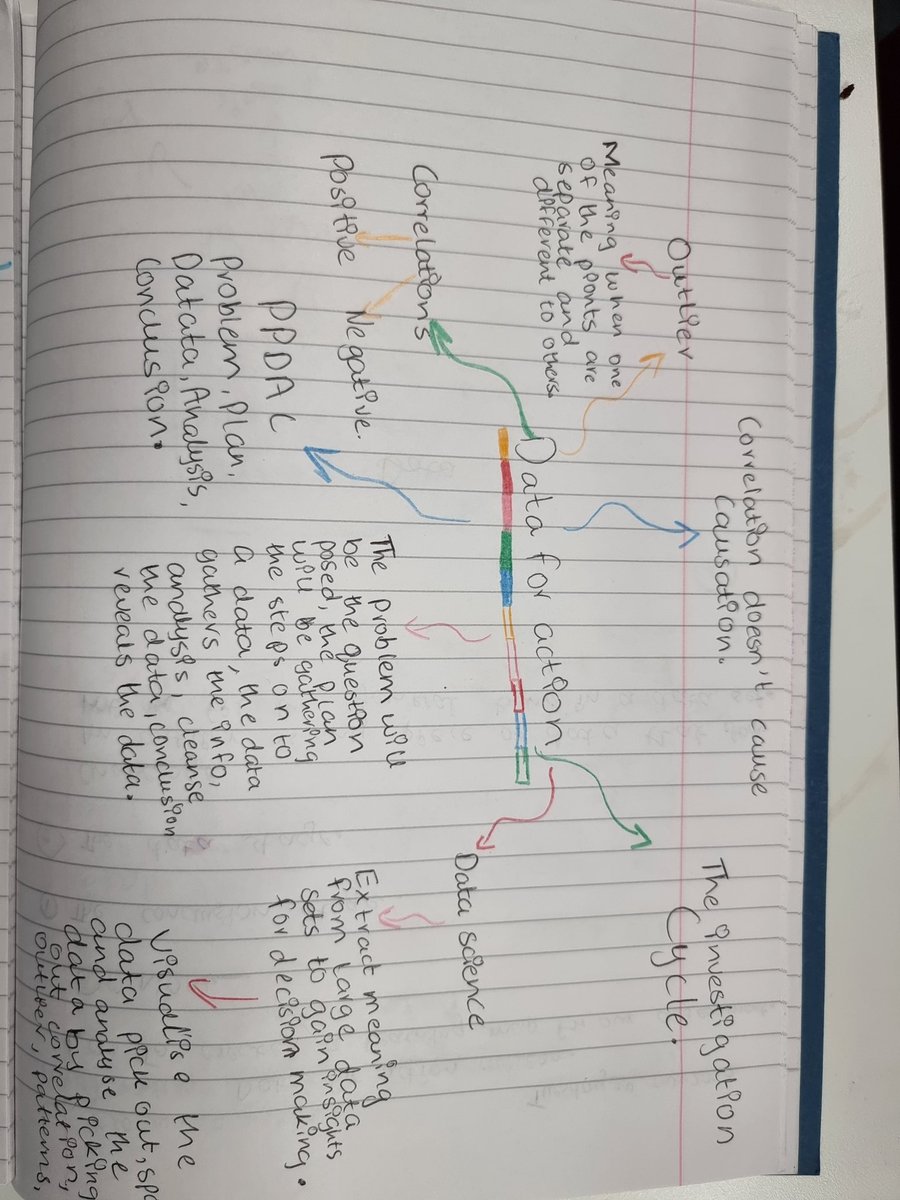 Data for action
Outlier
Meaning when one
of the pionts are
separate and
different to others.
Correlation doesn't cause
causation.
The investigation
Cycle.
Correlations
Positive
Negative.
PPDAC
Problem, Plan,
Datata, Analysis,
Conclusion.
The problem will
be the question
posed, the plan
will be gathering
the steps on to
a data, the data
gathers the info,
analysis, cleanse
the data, conclusion
reveals the data.
Data science
Extract meaning
from large data
sets to gain insights
for decision making.
Visualise the
data pick out,
and analyse the
data by picking
out correlation,
outlier, patterns,